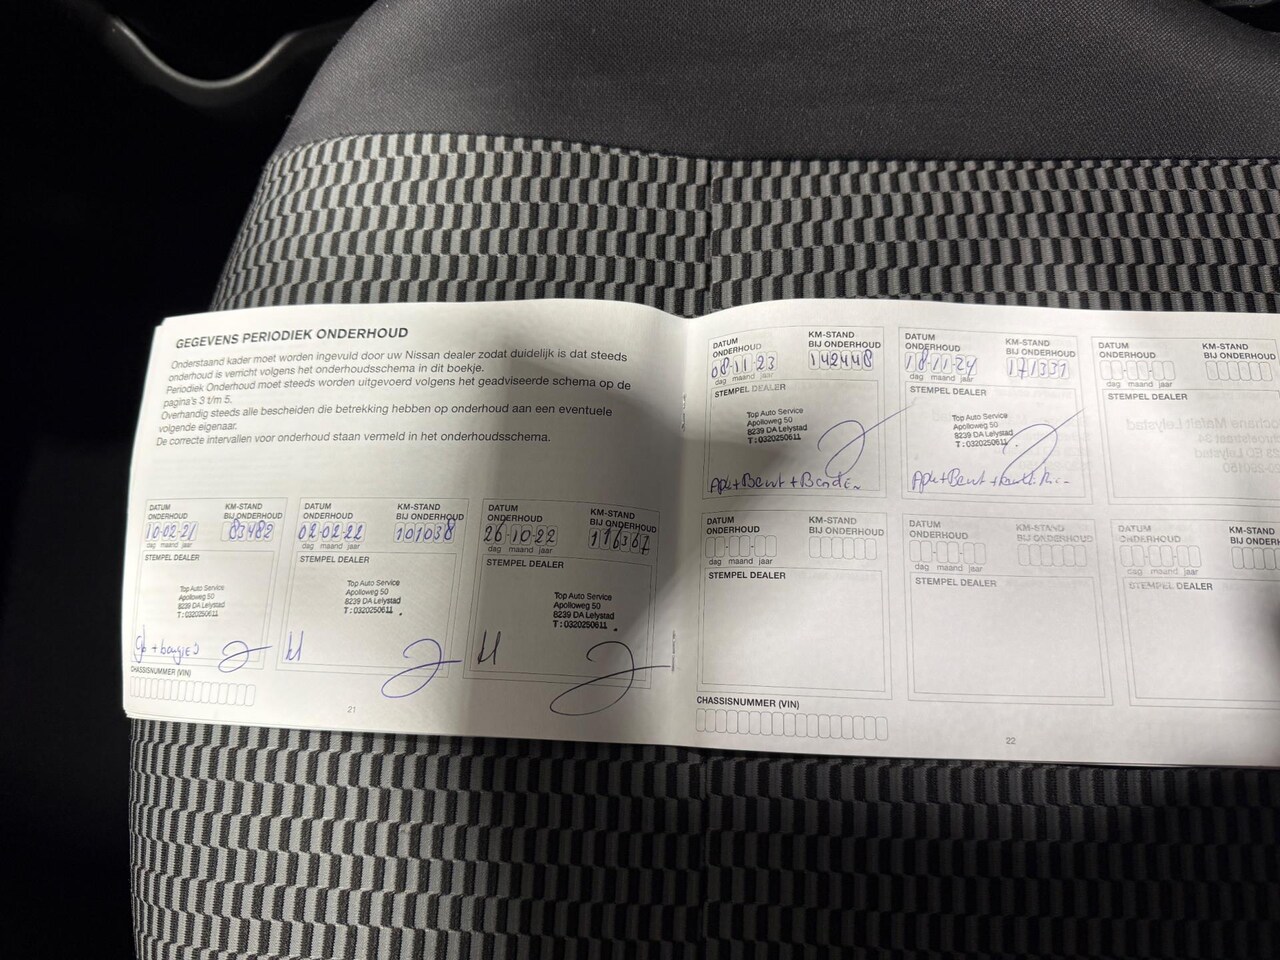 GEGEVENS PERIODIEK ONDERHOUD
Onderstaand kader moet worden ingevuld door uw Nissan dealer zodat duidelijk is dat steeds
onderhoud is verricht volgens het onderhoudsschema in dit boekje.
Periodiek Onderhoud moet steeds worden uitgevoerd volgens het geadviseerde schema op de
pagina's 3 t/m 5.
Overhandig steeds alle bescheiden die betrekking hebben op onderhoud aan een eventuele
volgende eigenaar.
De correcte intervallen voor onderhoud staan vermeld in het onderhoudsschema.
DATUM ONDERHOUD KM-STAND BIJ ONDERHOUD
10-02-21 83482
dag maand jaar
STEMPEL DEALER
Top Auto Service
Apolloweg 50
8239 DA Lelystad
T : 0320250611
CHASSISNUMMER (VIN)
DATUM ONDERHOUD KM-STAND BIJ ONDERHOUD
02-02-22 101038
dag maand jaar
STEMPEL DEALER
Top Auto Service
Apolloweg 50
8239 DA Lelystad
T : 0320250611
DATUM ONDERHOUD KM-STAND BIJ ONDERHOUD
26-10-22 116367
dag maand jaar
STEMPEL DEALER
Top Auto Service
Apolloweg 50
8239 DA Lelystad
T : 0320250611
21
DATUM ONDERHOUD KM-STAND BIJ ONDERHOUD
08-11-23 142448
dag maand jaar
STEMPEL DEALER
Top Auto Service
Apolloweg 50
8239 DA Lelystad
T : 0320250611
DATUM ONDERHOUD KM-STAND BIJ ONDERHOUD
18-11-24 171331
dag maand jaar
STEMPEL DEALER
Top Auto Service
Apolloweg 50
8239 DA Lelystad
T : 0320250611
DATUM ONDERHOUD KM-STAND BIJ ONDERHOUD
dag maand jaar
STEMPEL DEALER
DATUM ONDERHOUD KM-STAND BIJ ONDERHOUD
dag maand jaar
STEMPEL DEALER
DATUM ONDERHOUD KM-STAND BIJ ONDERHOUD
dag maand jaar
STEMPEL DEALER
DATUM ONDERHOUD KM-STAND BIJ ONDERHOUD
dag maand jaar
STEMPEL DEALER
CHASSISNUMMER (VIN)
22